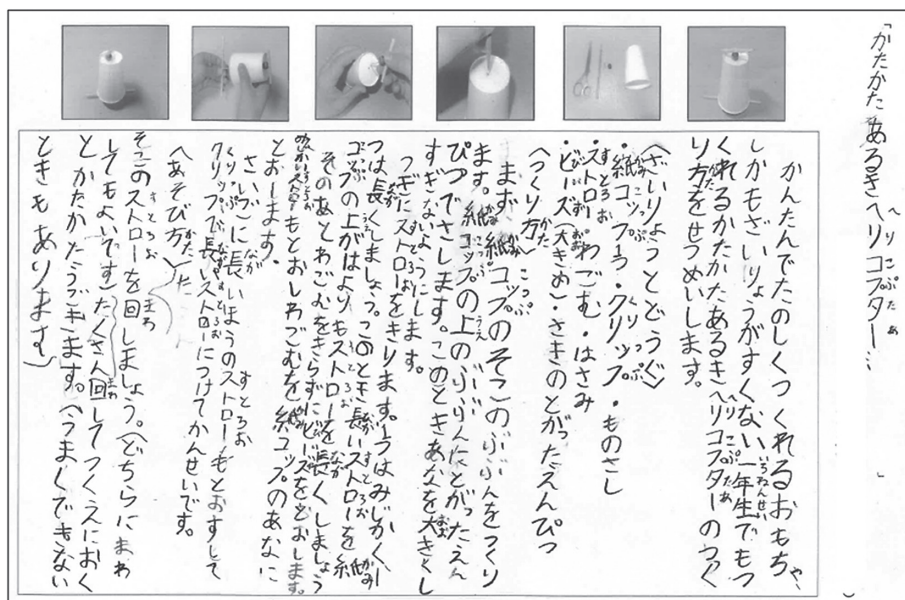 「かたかたあるきヘリコプター…
かんたんでたのしくつくれるおもちゃ、
しかもざいりょうがすくない一年生でもつ
くれるかたかたあるきヘリコプターのつく
り方をせつめいします。
〈ざいりょうとどうぐ〉
・紙コップ一つ・クリップ ・ものさし
・ストロー・わごむ・はさみ
・ビーズ(大きめ)・さきのとがったえんぴつ
〈つくり方〉
まず、紙コップのそこのぶぶんをつくり
ます。紙コップの上のぶぶんにとがったえん
ぴつでさします。このときあなを大きくし
すぎないようにします。
つぎにストローをきります。一つはみじかく一
つは長くしましょう。このとき長いストローを紙
コップの上がはよりもストローを長くしましょう
そのあとわごむをきらずにビーズをとおします。
もとおしわごむを紙コップのあなに
とおします。
さいごに長いほうのストローもとおすして
クリップで長いストローにつけてかんせいです。
〈あそび方〉
そこのストローを回しましょう。(どちらにまわ
してもよいです)たくさん回してつくえにおく
とかたかたうごきます。(うまくできない
ときもあります)